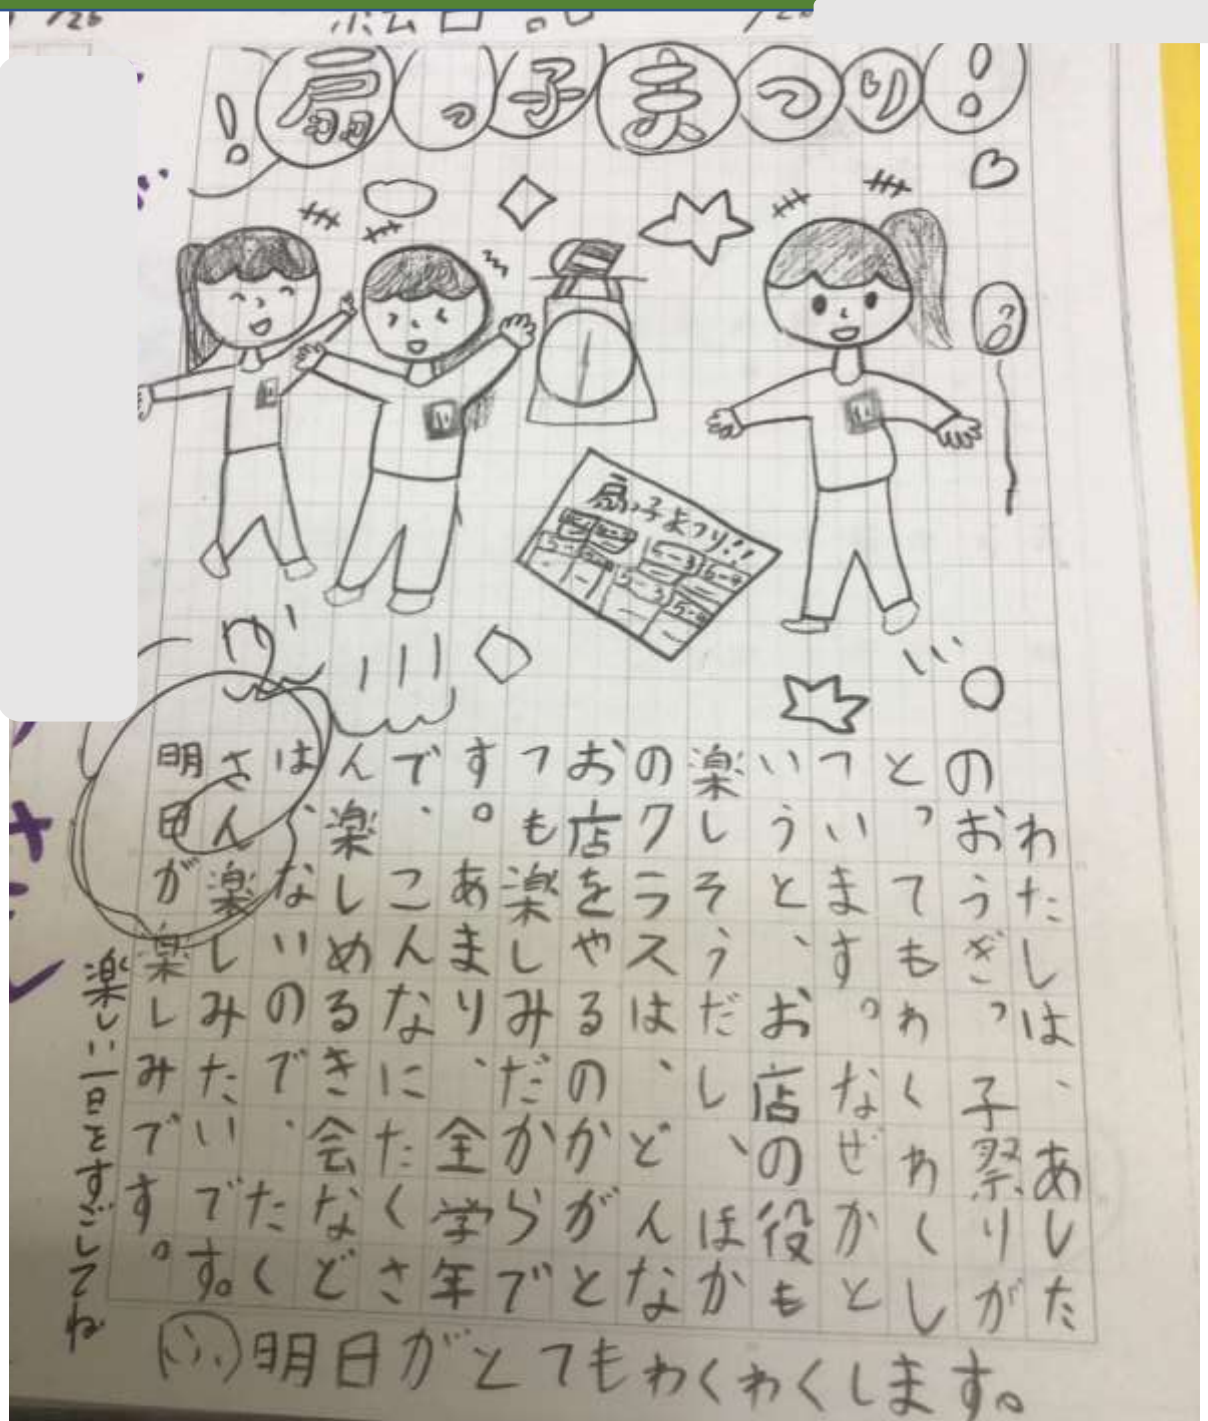 扇っ子まつり!
!
扇っ子まつり!!
5-3
5-4
5-3
5-4
わたしは、あした
のおうぎっ子祭りが
とってもわくわくし
ています。なぜかと
いうと、お店の役も
楽しそうだし、ほか
のクラスは、どんな
お店をやるのかがと
ても楽しみだからで
す。あまり、全学年
で、こんなにたくさ
ん楽しめるき会など
は、ないので、たく
さん楽しみたいです。
明日が楽しみです。
楽しい一日をすごしてね
(ふ)明日がとてもわくわくします。